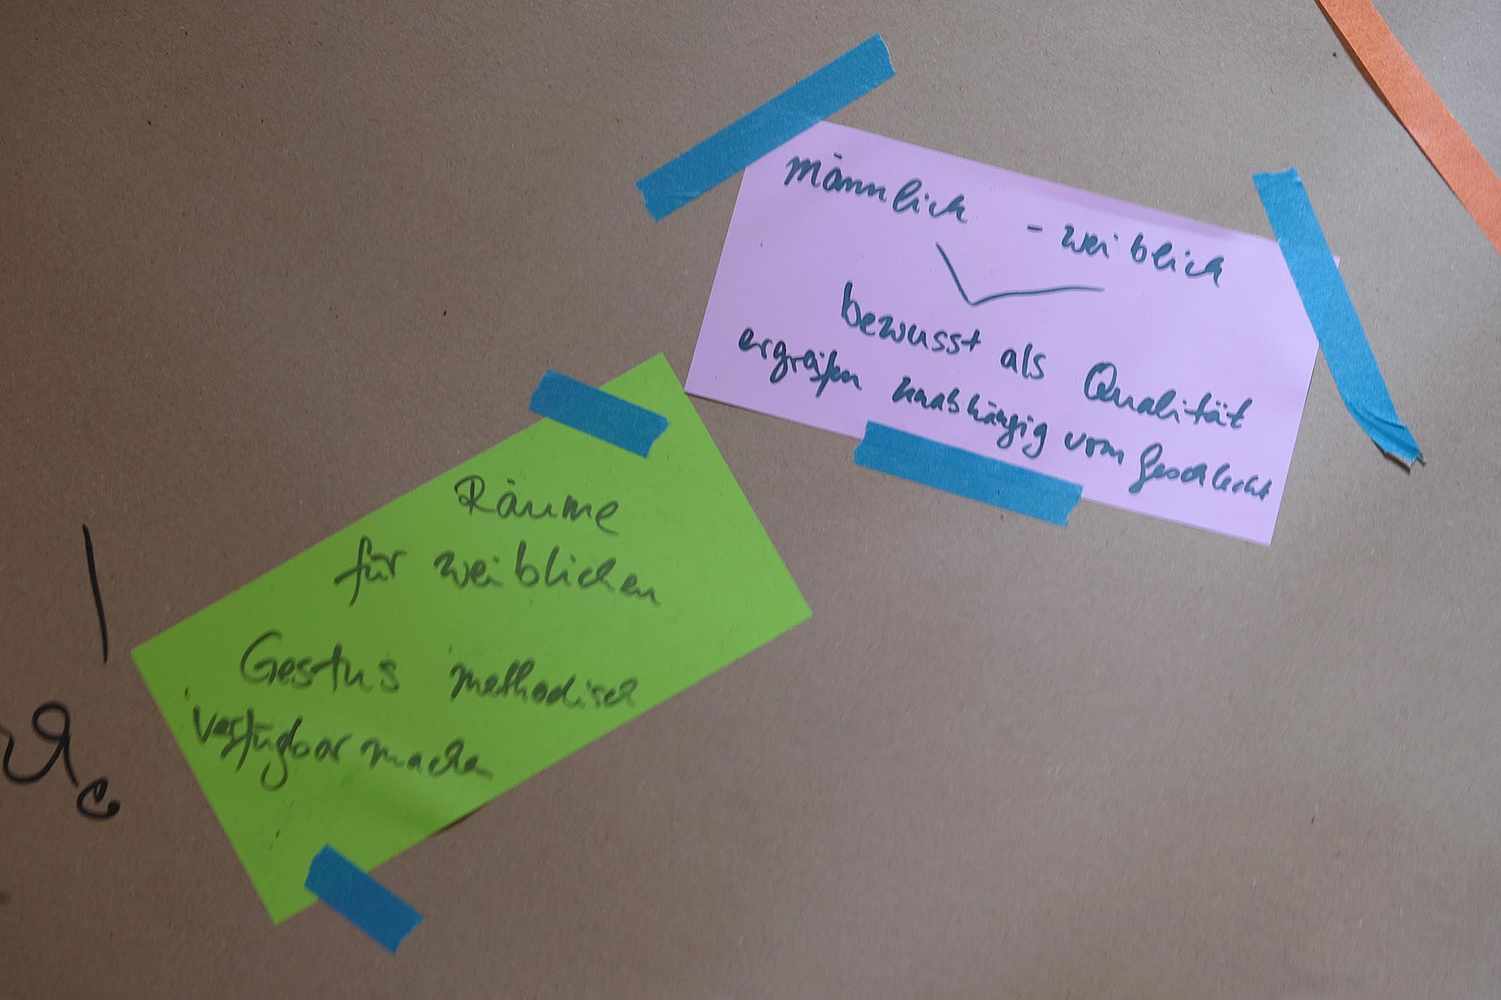 männlich - weiblich
bewusst als Qualität
ergreifen unabhängig vom Geschlecht
Räume
für weiblichen
Gestus methodisch
verfügbar machen